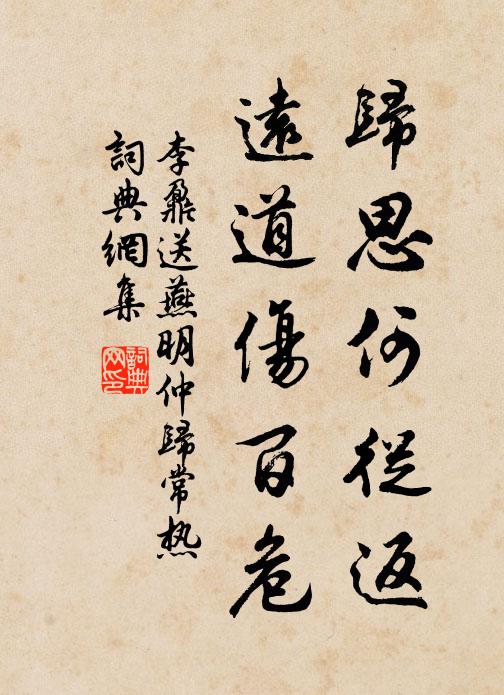 歸思何從返
遠道傷百危
李鼐送燕明仲歸常熱
詞典網集
詞典網印